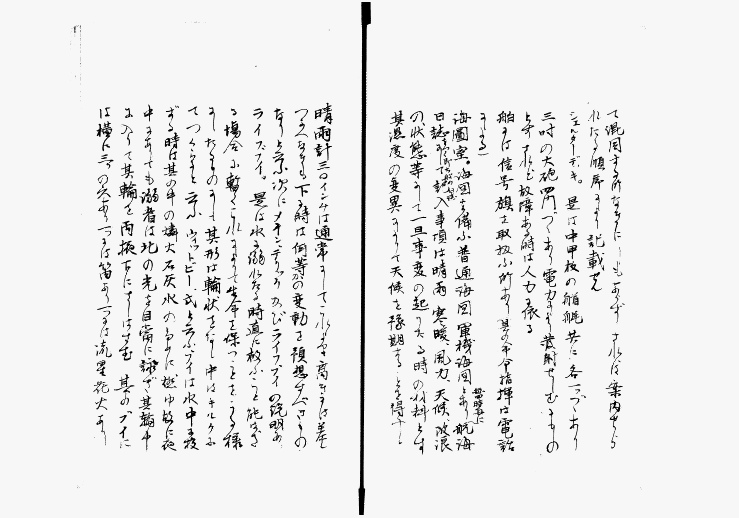 て混同する所なきにしもあらず されば案内せら
れたる順序により記載せん
シェルターデッキ。是は中甲板の舳艫共に各一つづゝあり
三吋の大砲四門づゝあり電力により発射せしむるもの
とす されど故障ある時は人力に依る
船には信号旗を取扱ふ所あり 其の命令指揮は電話
による)
海図室。海図を備ふ普通海図 軍機海図とあり 航海
日誌 記入事項は晴雨、寒暖、風力、天候、波浪
の状態等にして一旦事変の起りたる時の材料とす
其温度の変異によりて天候を予期することを得ると
晴雨計三〇インチは通常にして これより高き時は差
つかへなきも下る時は何等かの変動を預想すべきもの
なりと云ふ次に 及びライフブイの説明あり
ライフブイ。是は水に溺れたる時直に救ふこと能はざ
る場合に暫くこれによりて生命を保つことをうる様
にしたるものにして其形は輪状をなし中はキルクに
てつくると云ふ 式と云ふブイは水中に投
ずる時は其の中の燐火石灰水の為に燃ゆ故に夜
中にありても溺者は此の光を目当に泳ぎ其輪中
に入りて其輪を両 下にはさむ 其のブイに
は横に三つの穴あり一つは笛あり一つは流星花火あり